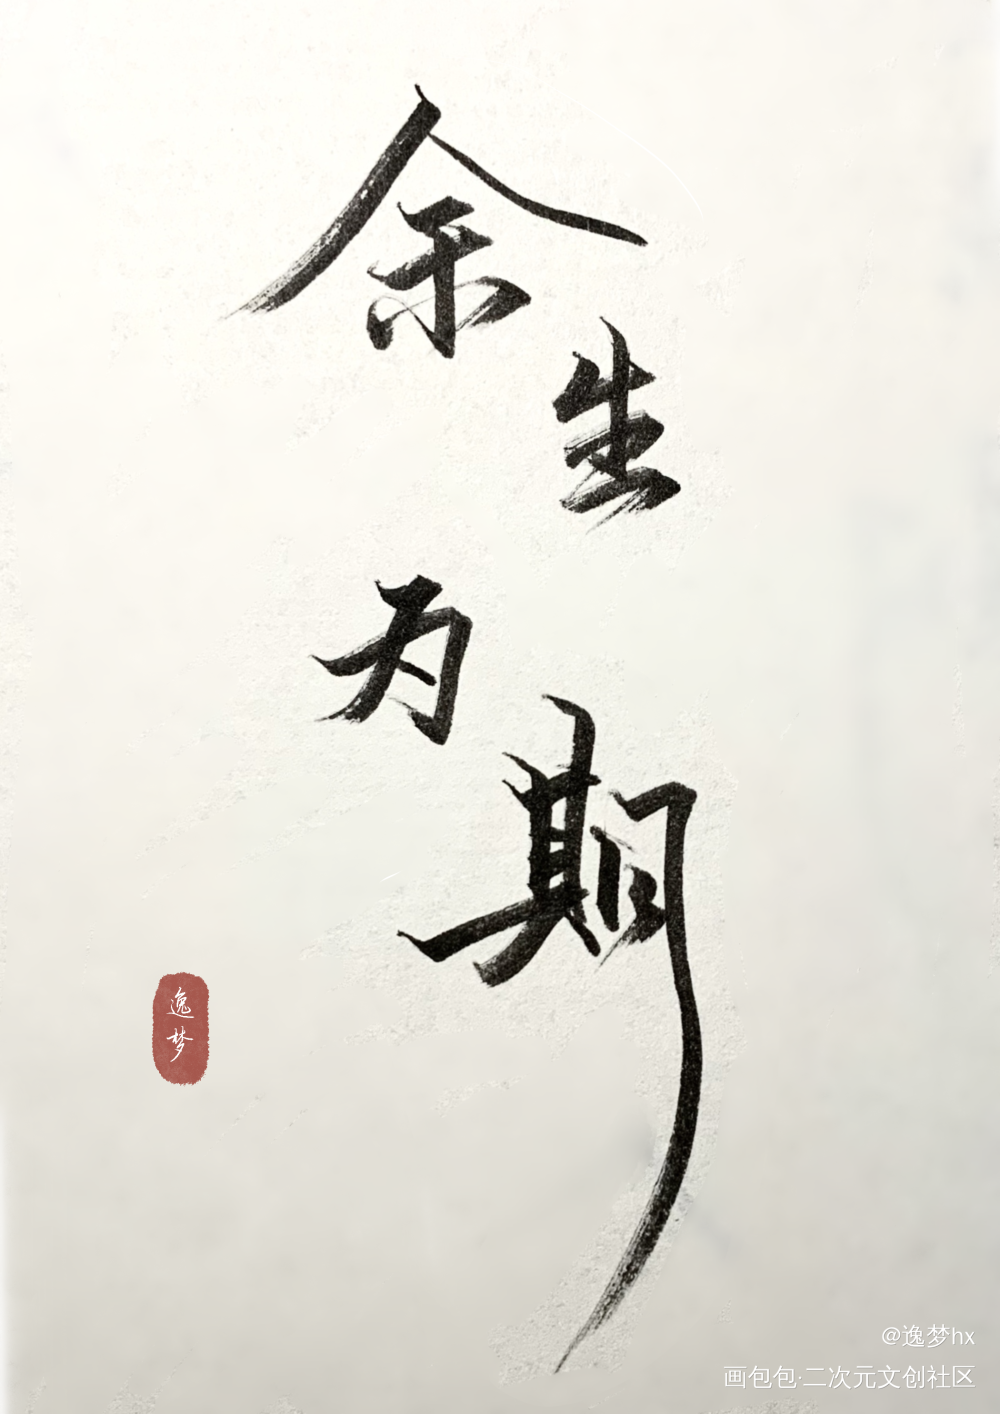 余生
为期
逸梦
@逸梦hx
画包包·二次元文创社区